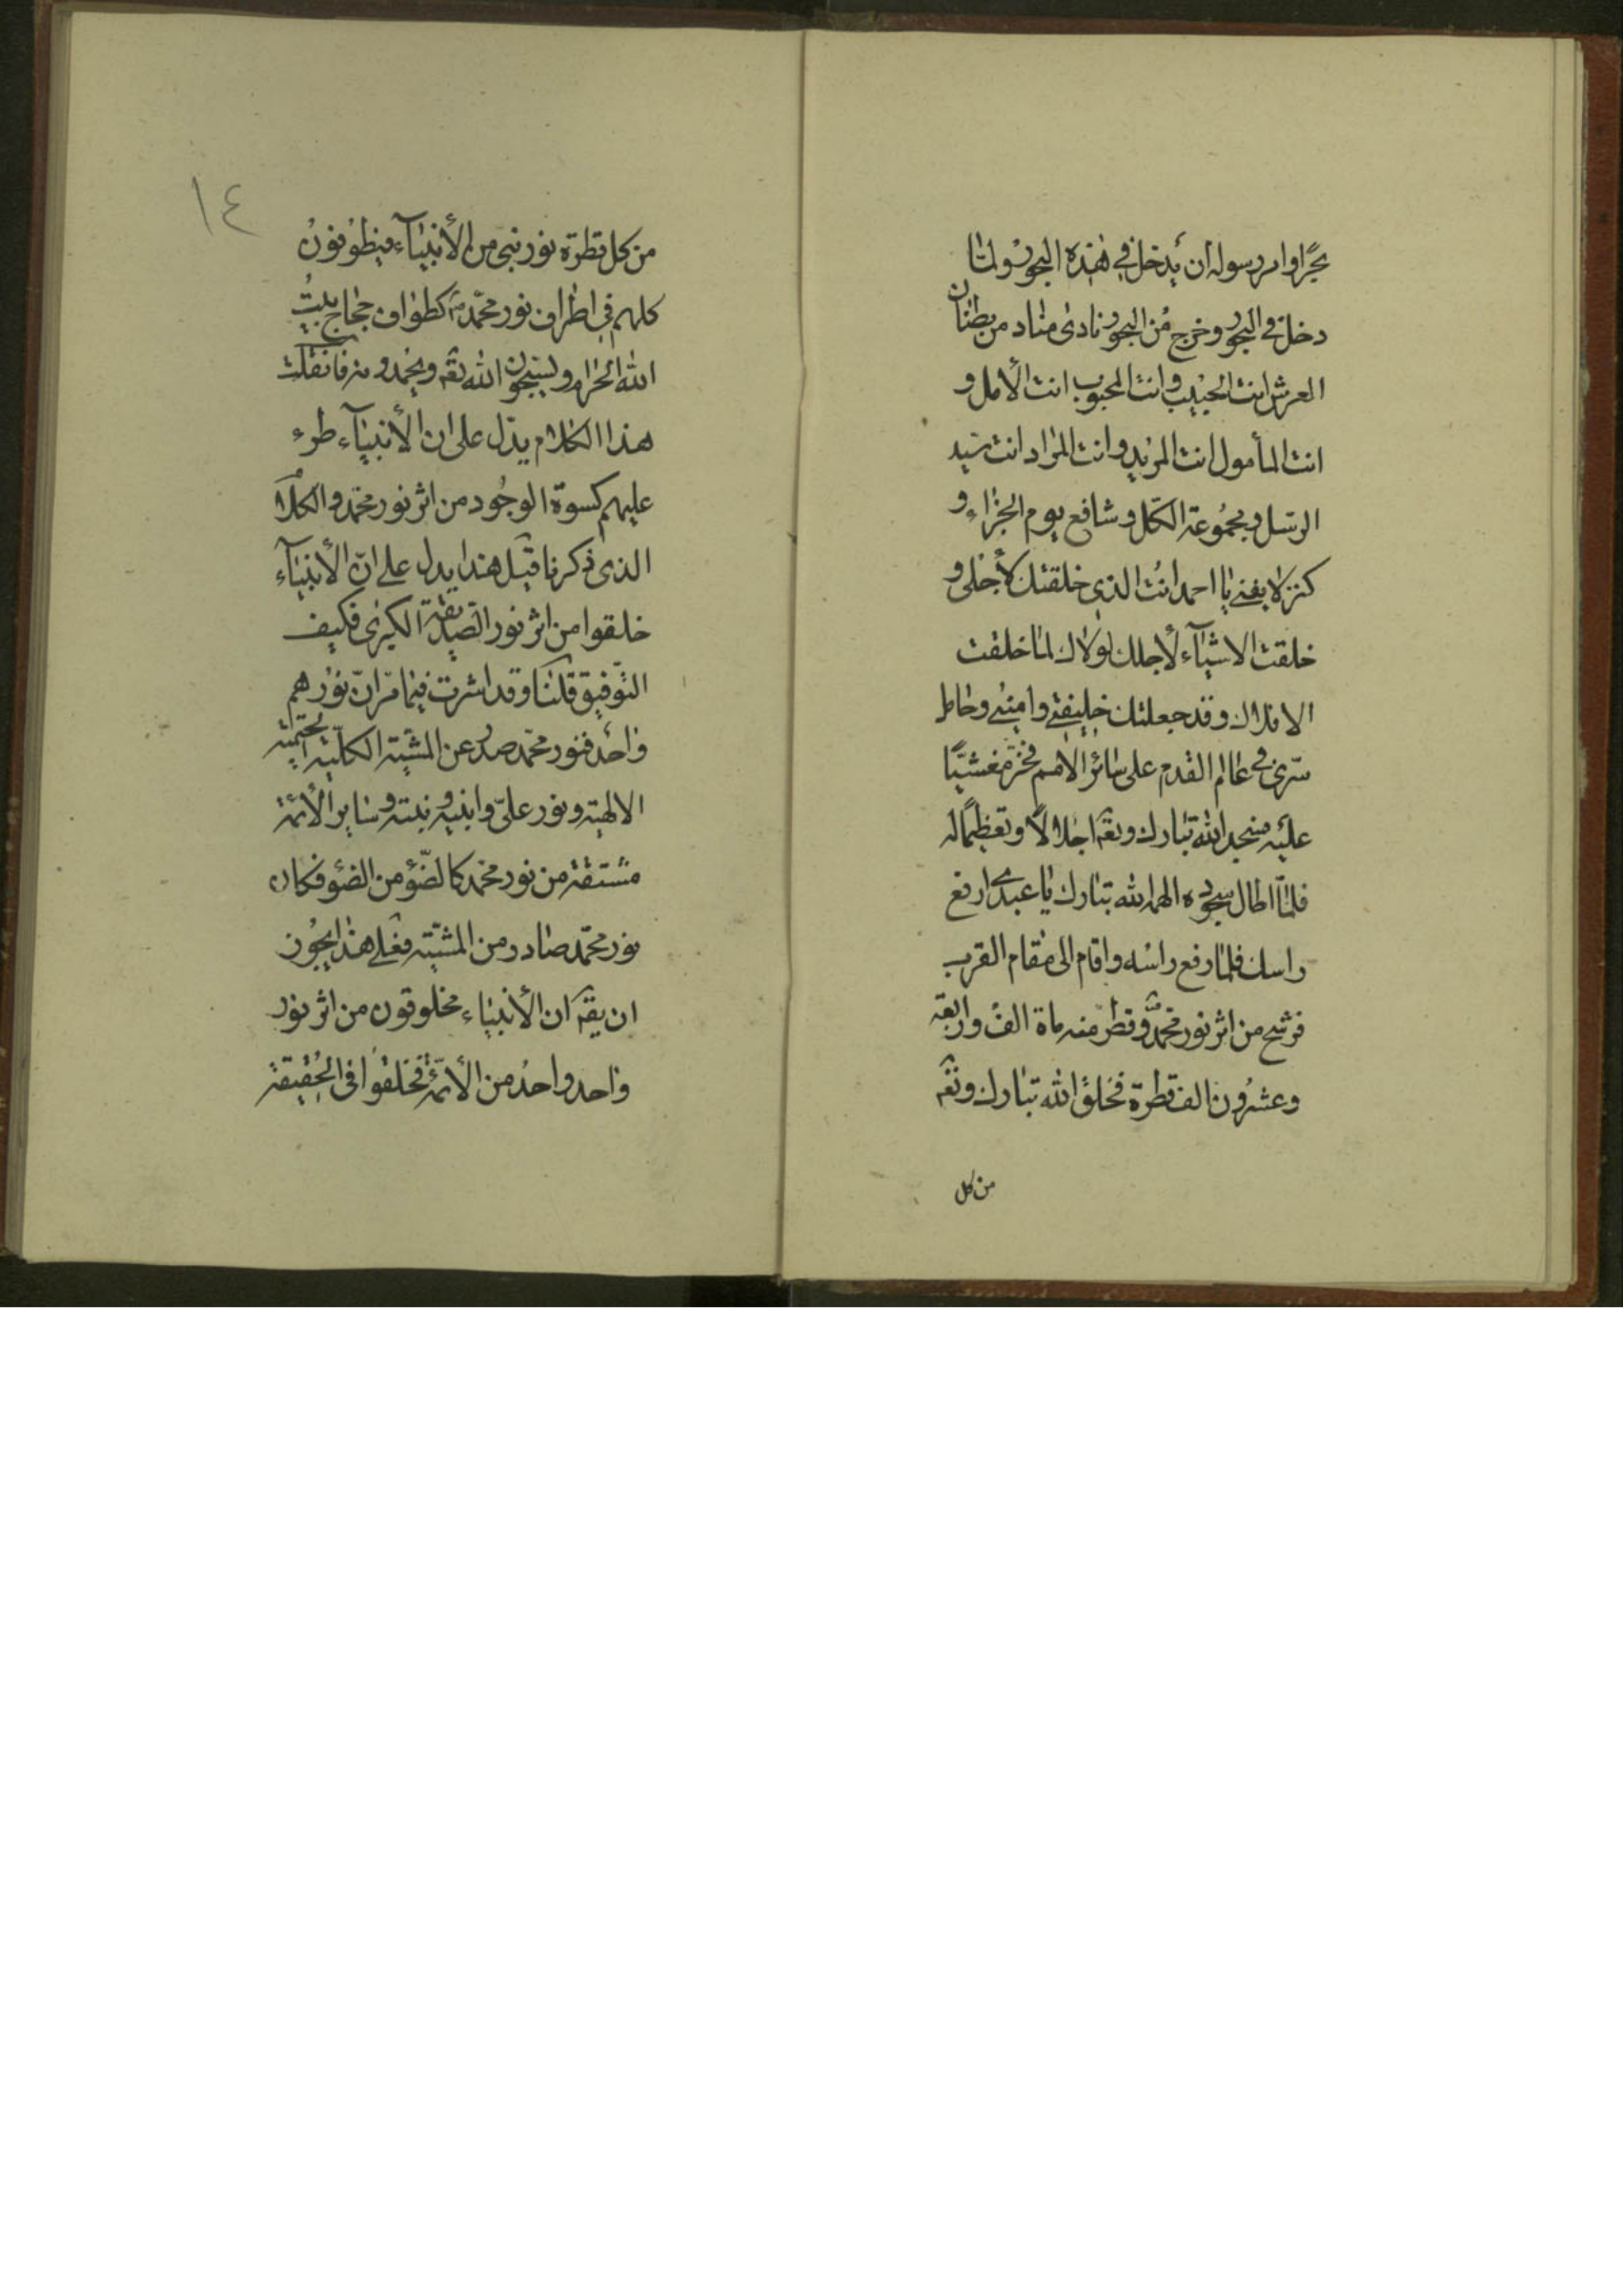 بحرًا وامر رسوله ان يدخل في هذه البحور ولما
دخل في البحور وخرج من البحور نادى مناد من بطنان
العرش انت الحبيب وانت المحبوب انت الأمل و
انت المأمول انت المريد وانت المراد انت سيد
الرسل ومجموعة الكل وشافع يوم الجزاء و
كنز لا يفنى يا احمد انت الذي خلقتك لأجلي و
خلقت الاشيآء لأجلك لولاك لما خلقت
الافلاك وقد جعلتك خليفتي واميني وحامل
سري في عالم القدم على سائر الامم فخر مغشيًا
عليه فسجد الله تبارك وتعه اجلالًا وتعظيمًا له
فلما اطال سجوده الهمه الله تبارك يا عبدي ارفع
راسك فلما رفع راسه واقام الى مقام القرب
فرشح من اثر نور محمد وقطر منه ماة الف واربعة
وعشرون الف قطرة فخلق الله تبارك وتعه
من كل
١٤
من كل قطرة نور نبي من الأنبيآء فيطوفون
كلهم في اطراف نور محمد ص كطواف حجاج بيت
الله الحرام ويسبحون الله تعه ويحمدونه فان قلت
هذا الكلام يدل على ان الأنبيآء طرء
عليهم كسوة الوجود من اثر نور محمد والكلام
الذي ذكرنا قبل هذا يدل على ان الأنبيآء
خلقوا من اثر نور الصديقة الكبرى فكيف
التوفيق قلنا وقد اشرت فيما مر ان نورهم
واحد فنور محمد صدر عن المشية الكلية الحتمية
الالهية ونور علي وابنيه وبنته وساير الأئمة
مشتقة من نور محمد كالضؤ من الضؤ فكان
نور محمد صادر من المشية فعلى هذا يجوز
ان يقه ان الأنبياء مخلوقون من اثر نور
واحد واحد من الأئمة فخلقوا في الحقيقة